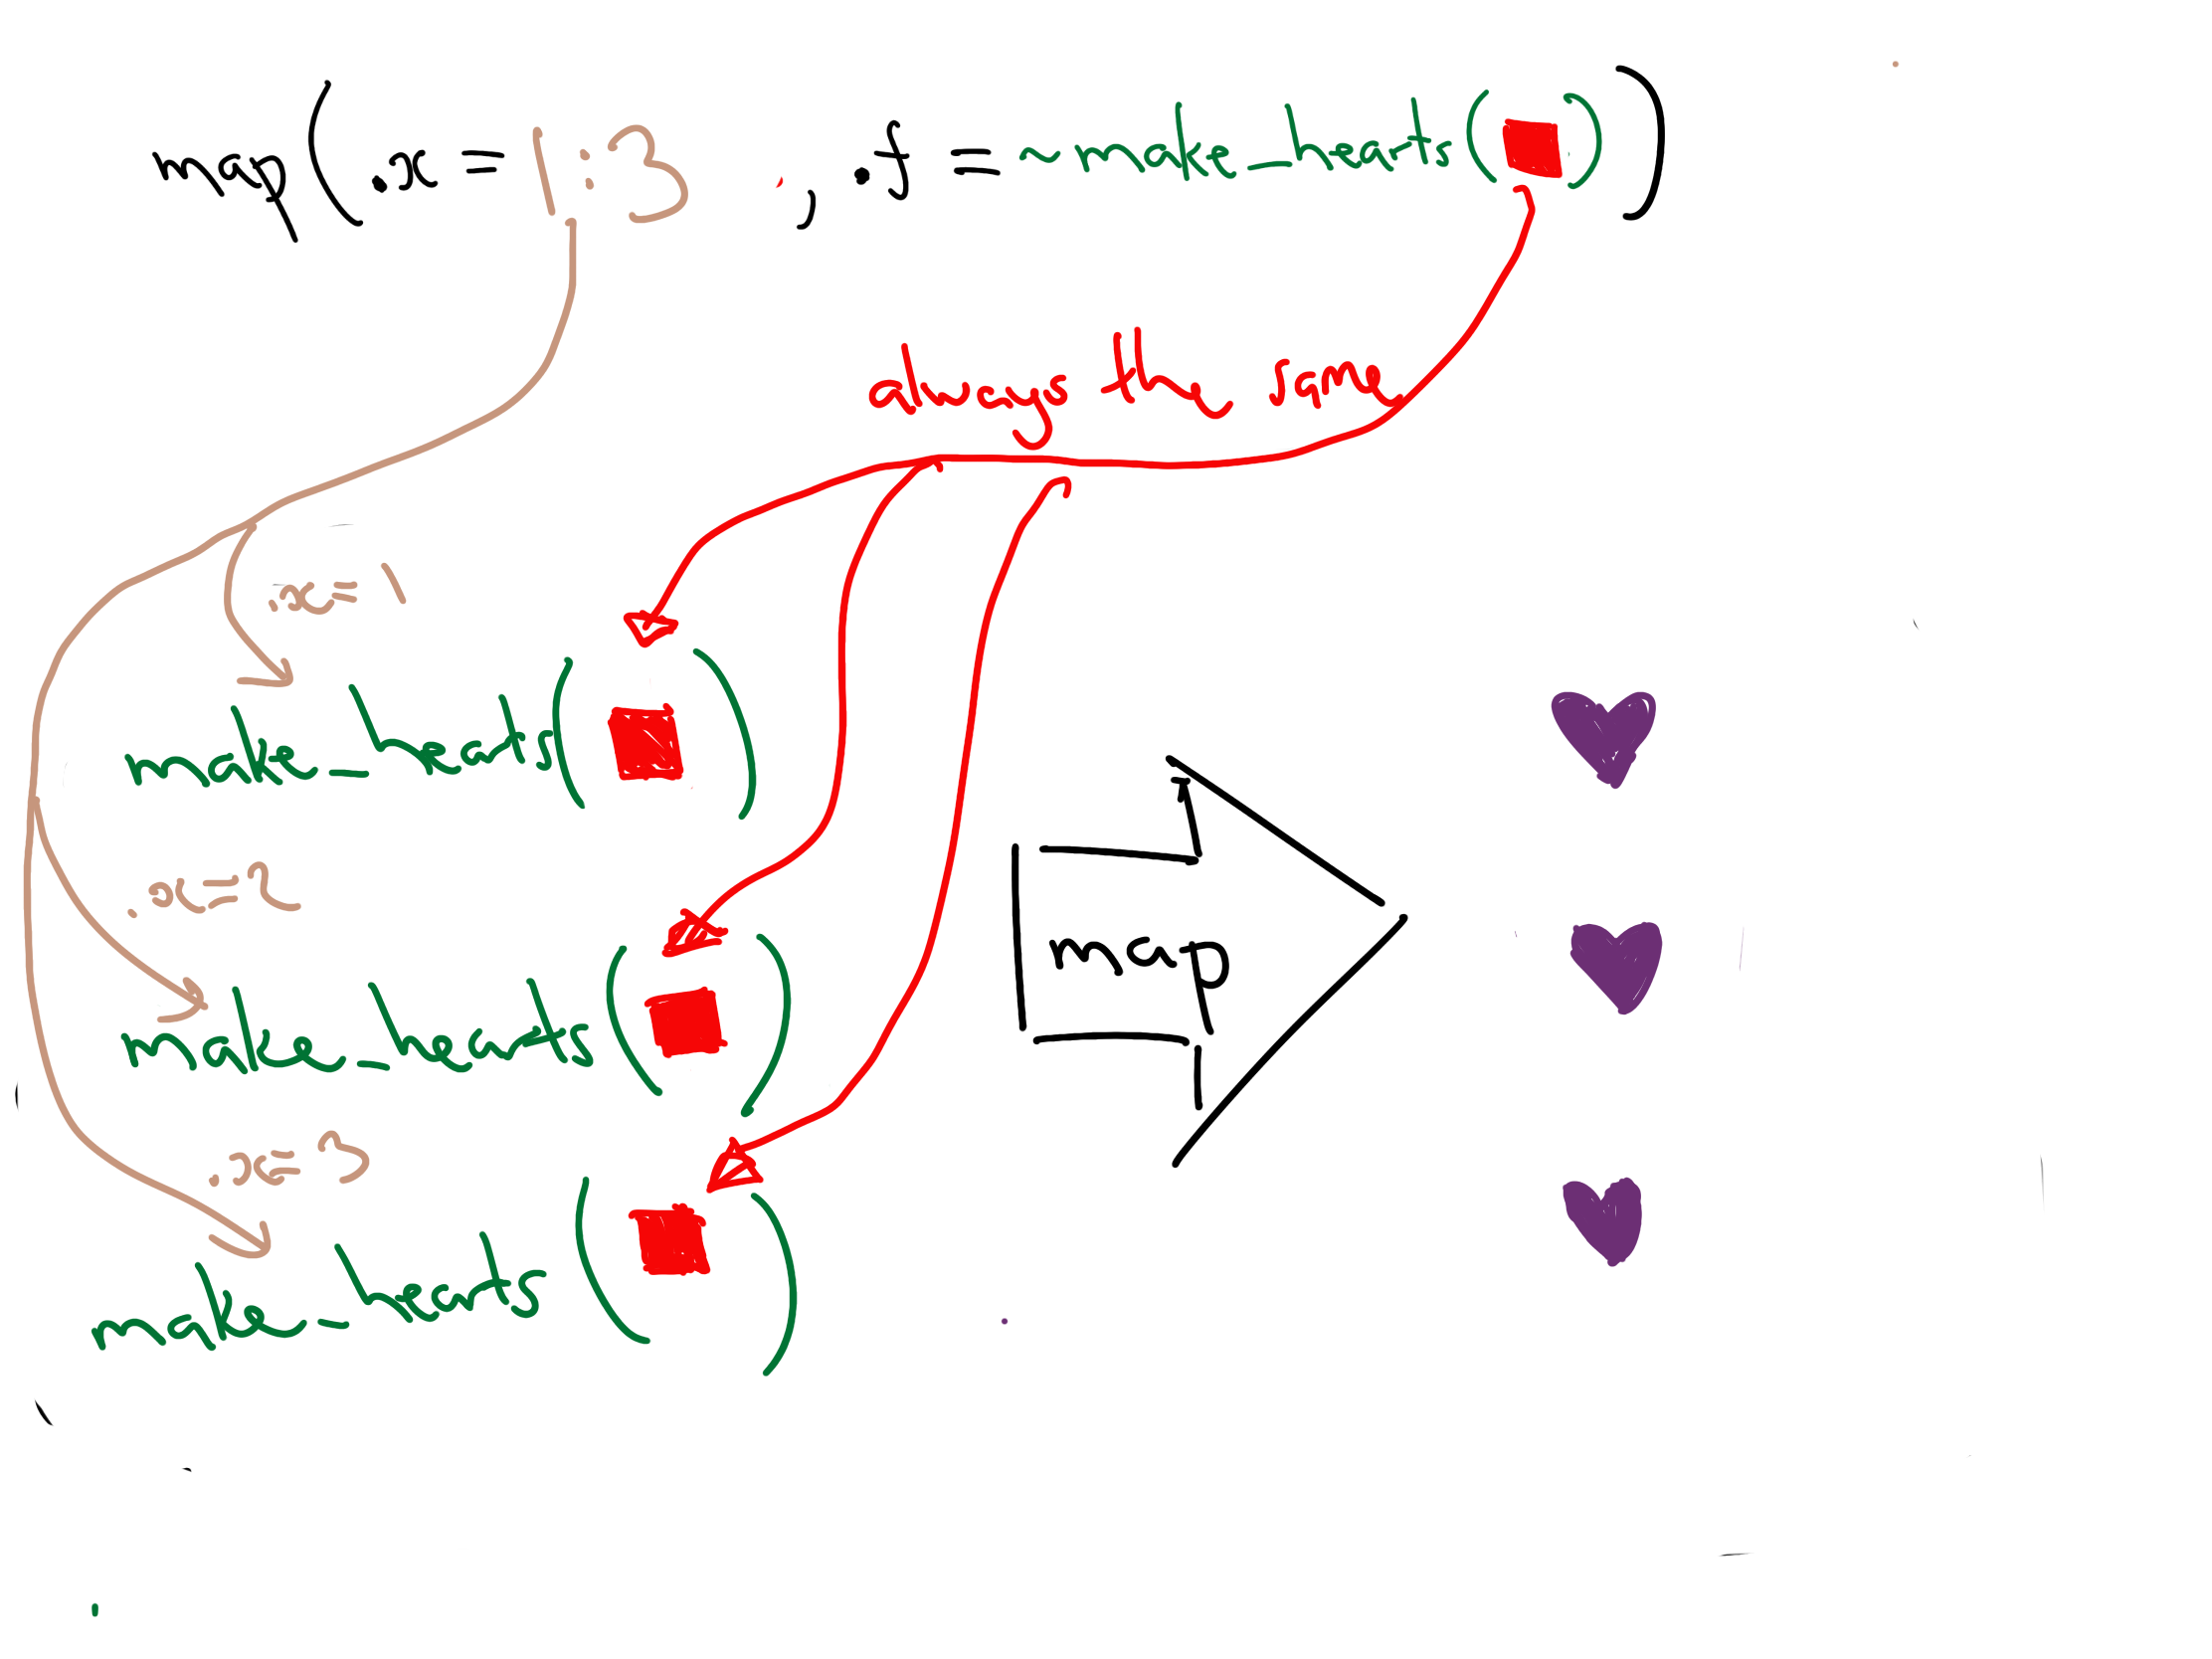 map(.x = 1:3 , .f = ~ make_hearts( ))
always the same
.x=1
make_hearts( )
.x=2
map
make_hearts( )
.x=3
make_hearts( )